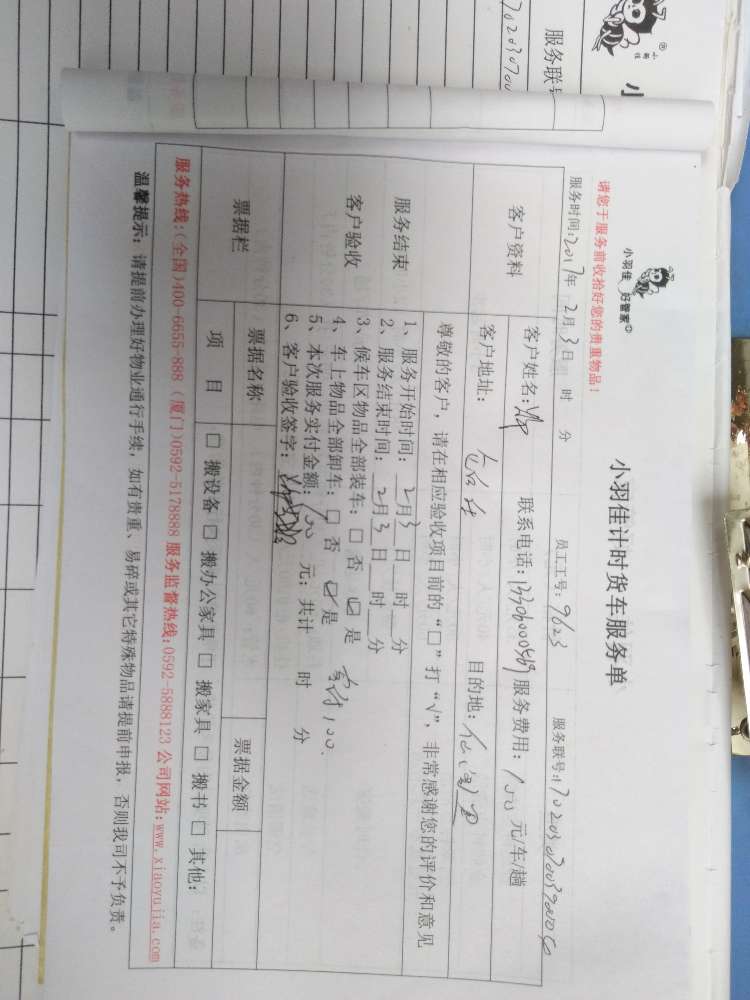 服务联
小羽佳 好管家
小羽佳计时货车服务单
请您于服务前收拾好您的贵重物品！
服务时间:2017年 2月 3日 时 分 员工工号: 9623 服务联号:
客户资料
客户姓名: 联系电话: 服务费用: 100 元/车/趟
客户地址: 目的地:
尊敬的客户，请在相应验收项目前的“□”打“√”，非常感谢您的评价和意见
服务结束
客户验收
1、服务开始时间: 2月3日 时 分
2、服务结束时间: 2月3日 时 分
3、候车区物品全部装车: □ 否 ☑ 是
4、车上物品全部卸车: □ 否 ☑ 是 100.
5、本次服务实付金额: 100 元; 共计 时 分
6、客户验收签字:
票据栏
票据名称 票据金额
项 目 □ 搬设备 □ 搬办公家具 □ 搬家具 □ 搬书 □ 其他:
服务热线:(全国)400-6655-888 (厦门)0592-5178888 服务监督热线:0592-5888123 公司网站:www.xiaoyujia.com
温馨提示: 请提前办理好物业通行手续，如有贵重、易碎或其它特殊物品请提前申报，否则我司不予负责。